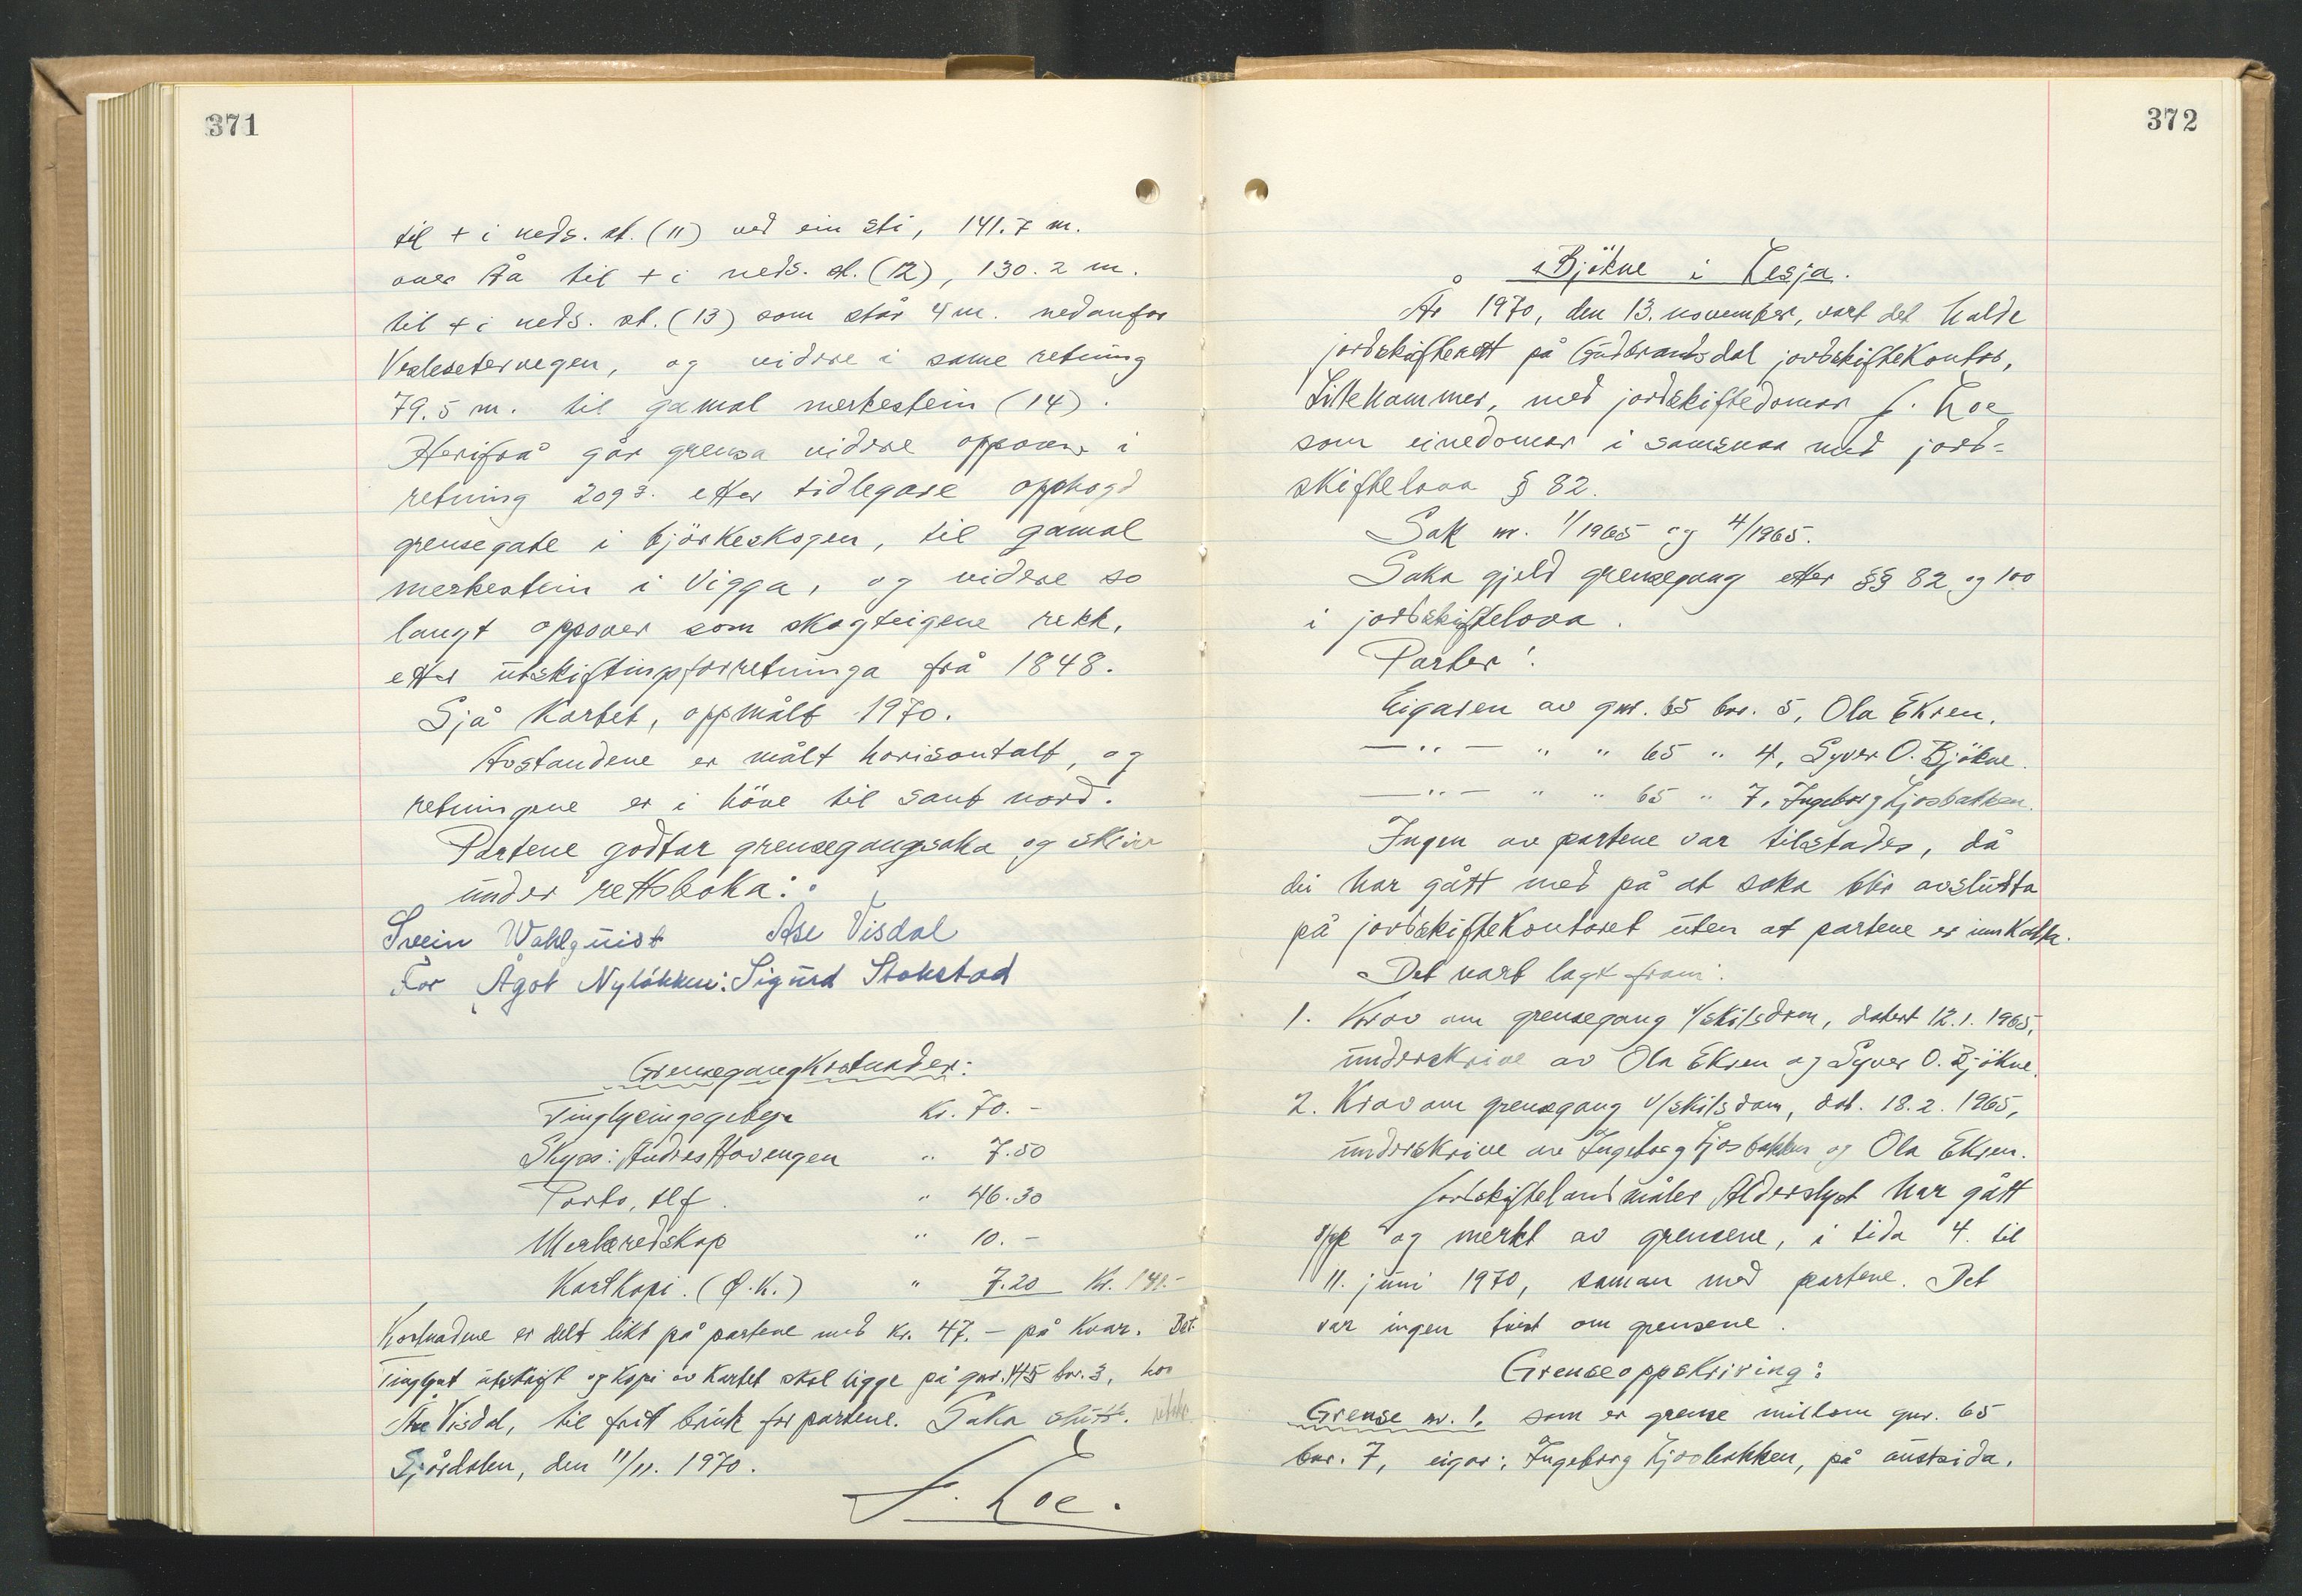 371
til + i neds. st. (11) ved ein sti, 141.7 m.
over Åa til + i neds. st. (12), 130.2 m.
til + i neds. st. (13) som står 4 m. nedanfor
Veslesetervegen, og vidare i same retning
79.5 m. til gamal merkestein (14).
Herifrå går grensa vidare oppover i
retning 209g. etter tidlegare opphogd
grensegate i björkeskogen, til gamal
merkestein i Vigga, og vidare so
langt oppover som skogteigene rekk,
etter utskiftingsforretninga frå 1848.
Sjå Kartet, oppmålt 1970.
Avstandene er målt horisontalt, og
retningene er i höve til sant nord.
Partene godtar grensegangsaka og skriv
under rettsboka:
Svein Wahlquist Åse Visdal
For Ågot Nyløkken: Sigurd Stokstad
Grensegangkostnader:
Tinglysingsgebyr Kr. 70.-
Skyss: Andres Havengen " 7.50
Porto, tlf. " 46.30
Merkeredskap " 10.-
Kartkopi. (Ø.K.) " 7.20 Kr. 141.-
Kostnadene er delt likt på partene med kr. 47.- på kvar. Bet.
Tinglyst utskrift og kopi av kartet skal ligge på gnr. 145 br. 3, hos
Åse Visdal, til fritt bruk for partene. Saka slutt.
Sjårdalen, den 11/11. 1970.
J. Loe.
372
Bjökne i Lesja.
År 1970, den 13. november, vart det halde
jordskifterett på Gudbrandsdal jordskiftekontor,
Lillehammer, med jordskiftedomar J. Loe
som einedomar i samsvar med jord-
skiftelova § 82.
Sak nr. 1/1965 og 4/1965.
Saka gjeld grensegang etter §§ 82 og 100
i jordskiftelova.
Parter:
Eigaren av gnr. 65 bnr. 5, Ola Ekren.
—"— " " 65 " 4, Syver O. Bjökne.
—"— " " 65 " 7, Ingeborg Ljosbakken.
Ingen av partene var tilstades, då
dei har gått med på at saka blir avslutta
på jordskiftekontoret uten at partene er innkalla.
Det vart lagt fram:
1. Krav om grensegang v/skilsdom, datert 12.1. 1965,
underskrive av Ola Ekren og Syver O. Bjökne.
2. Krav om grensegang v/skilsdom, dat. 18.2. 1965,
underskrive av Ingeborg Ljosbakken og Ola Ekren.
Jordskiftelandmåler Alderslyst har gått
opp og merkt av grensene, i tida 4. til
11. juni 1970, saman med partene. Det
var ingen tvist om grensene.
Grenseoppskriving:
Grense nr. 1, som er grense millom gnr. 65
bnr. 7, eigar: Ingeborg Ljosbakken, på austsida,